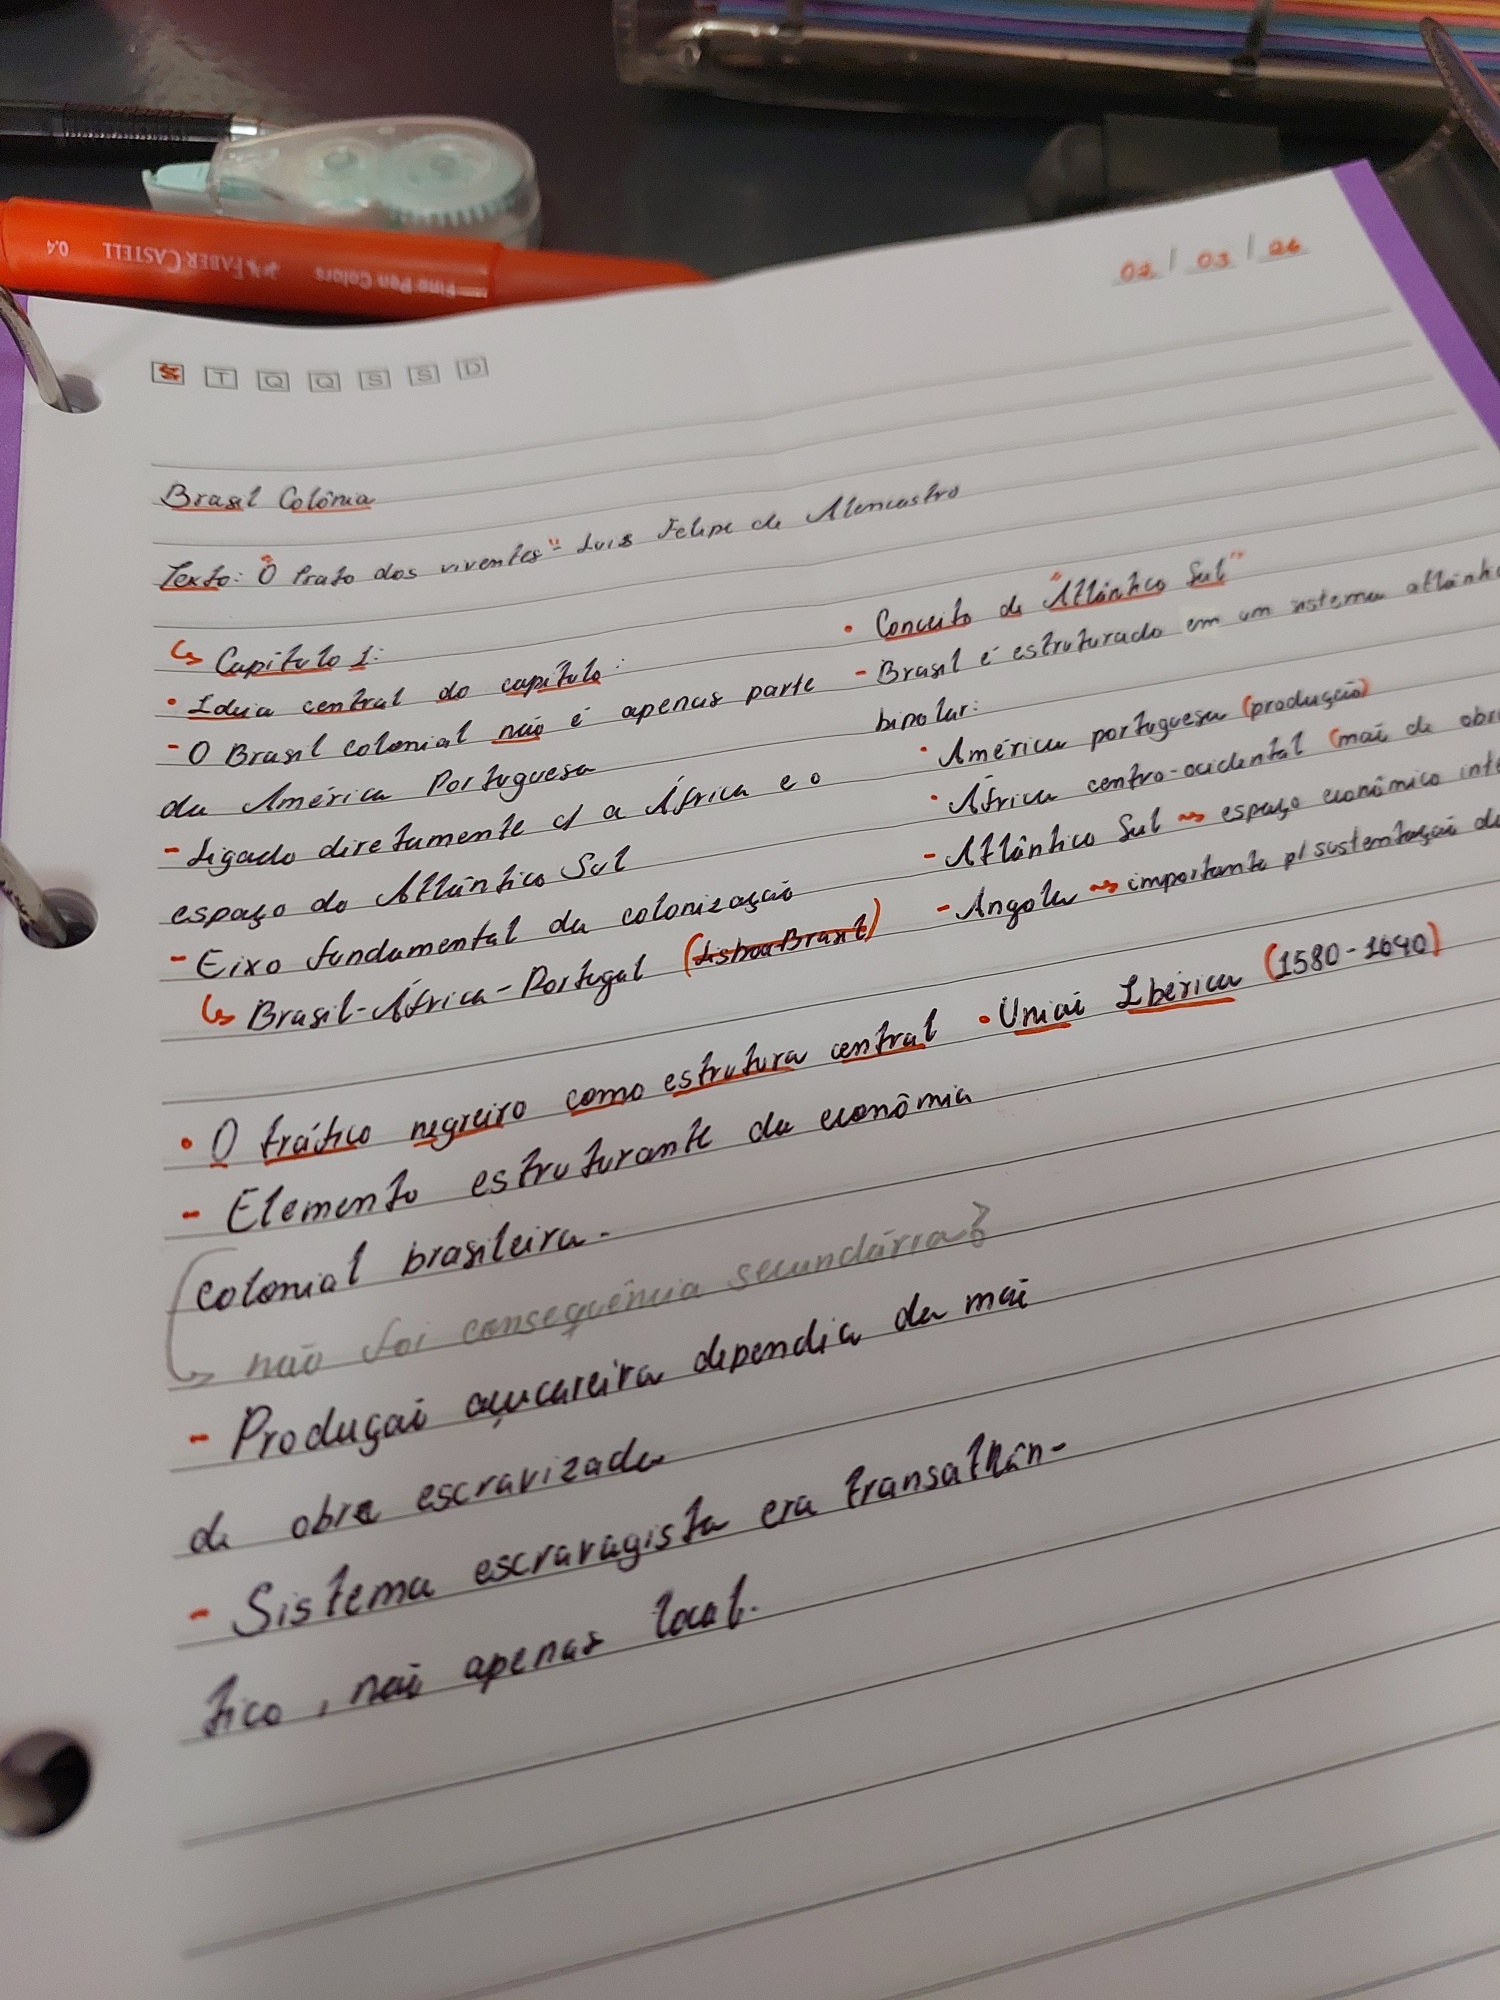 0.4 FABER-CASTELL Fine Pen Colors
02 / 03 / 26
S T Q Q S S D
Brasil Colônia
Texto: "O Trato dos viventes" - Luis Felipe de Alencastro
↳ Capítulo 1:
• Ideia central do capítulo:
- O Brasil colonial não é apenas parte
da América Portuguesa
- Ligado diretamente c/ a África e o
espaço do Atlântico Sul
- Eixo fundamental da colonização
↳ Brasil-África-Portugal (Lisboa-Brasil)
• O tráfico negreiro como estrutura central
- Elemento estruturante da econômia
colonial brasileira.
↳ não foi consequência secundária?
- Produção açucareira dependia da mão
de obra escravizada
- Sistema escravagista era transatlân-
tico, não apenas local.
• Conceito de "Atlântico Sul"
- Brasil é estruturado em um sistema atlântic
bipolar:
• América portuguesa (produção)
• África centro-ocidental (mão de obra
- Atlântico Sul → espaço econômico inte
- Angola → importante p/ sustentação d
• União Ibérica (1580-1640)